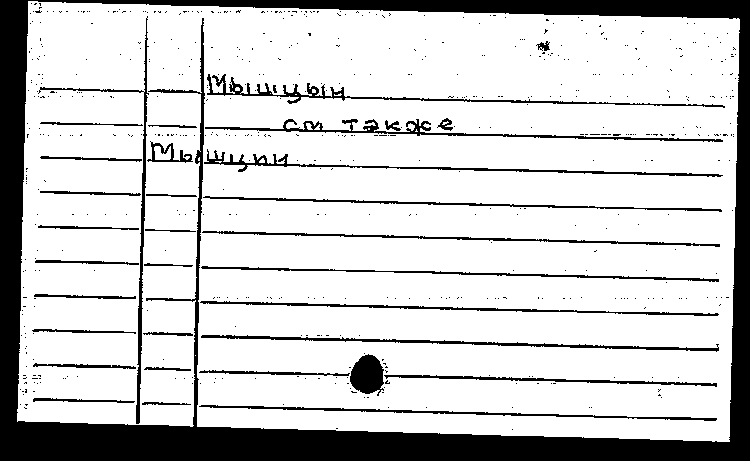 Мышцын
см также
Мышцин